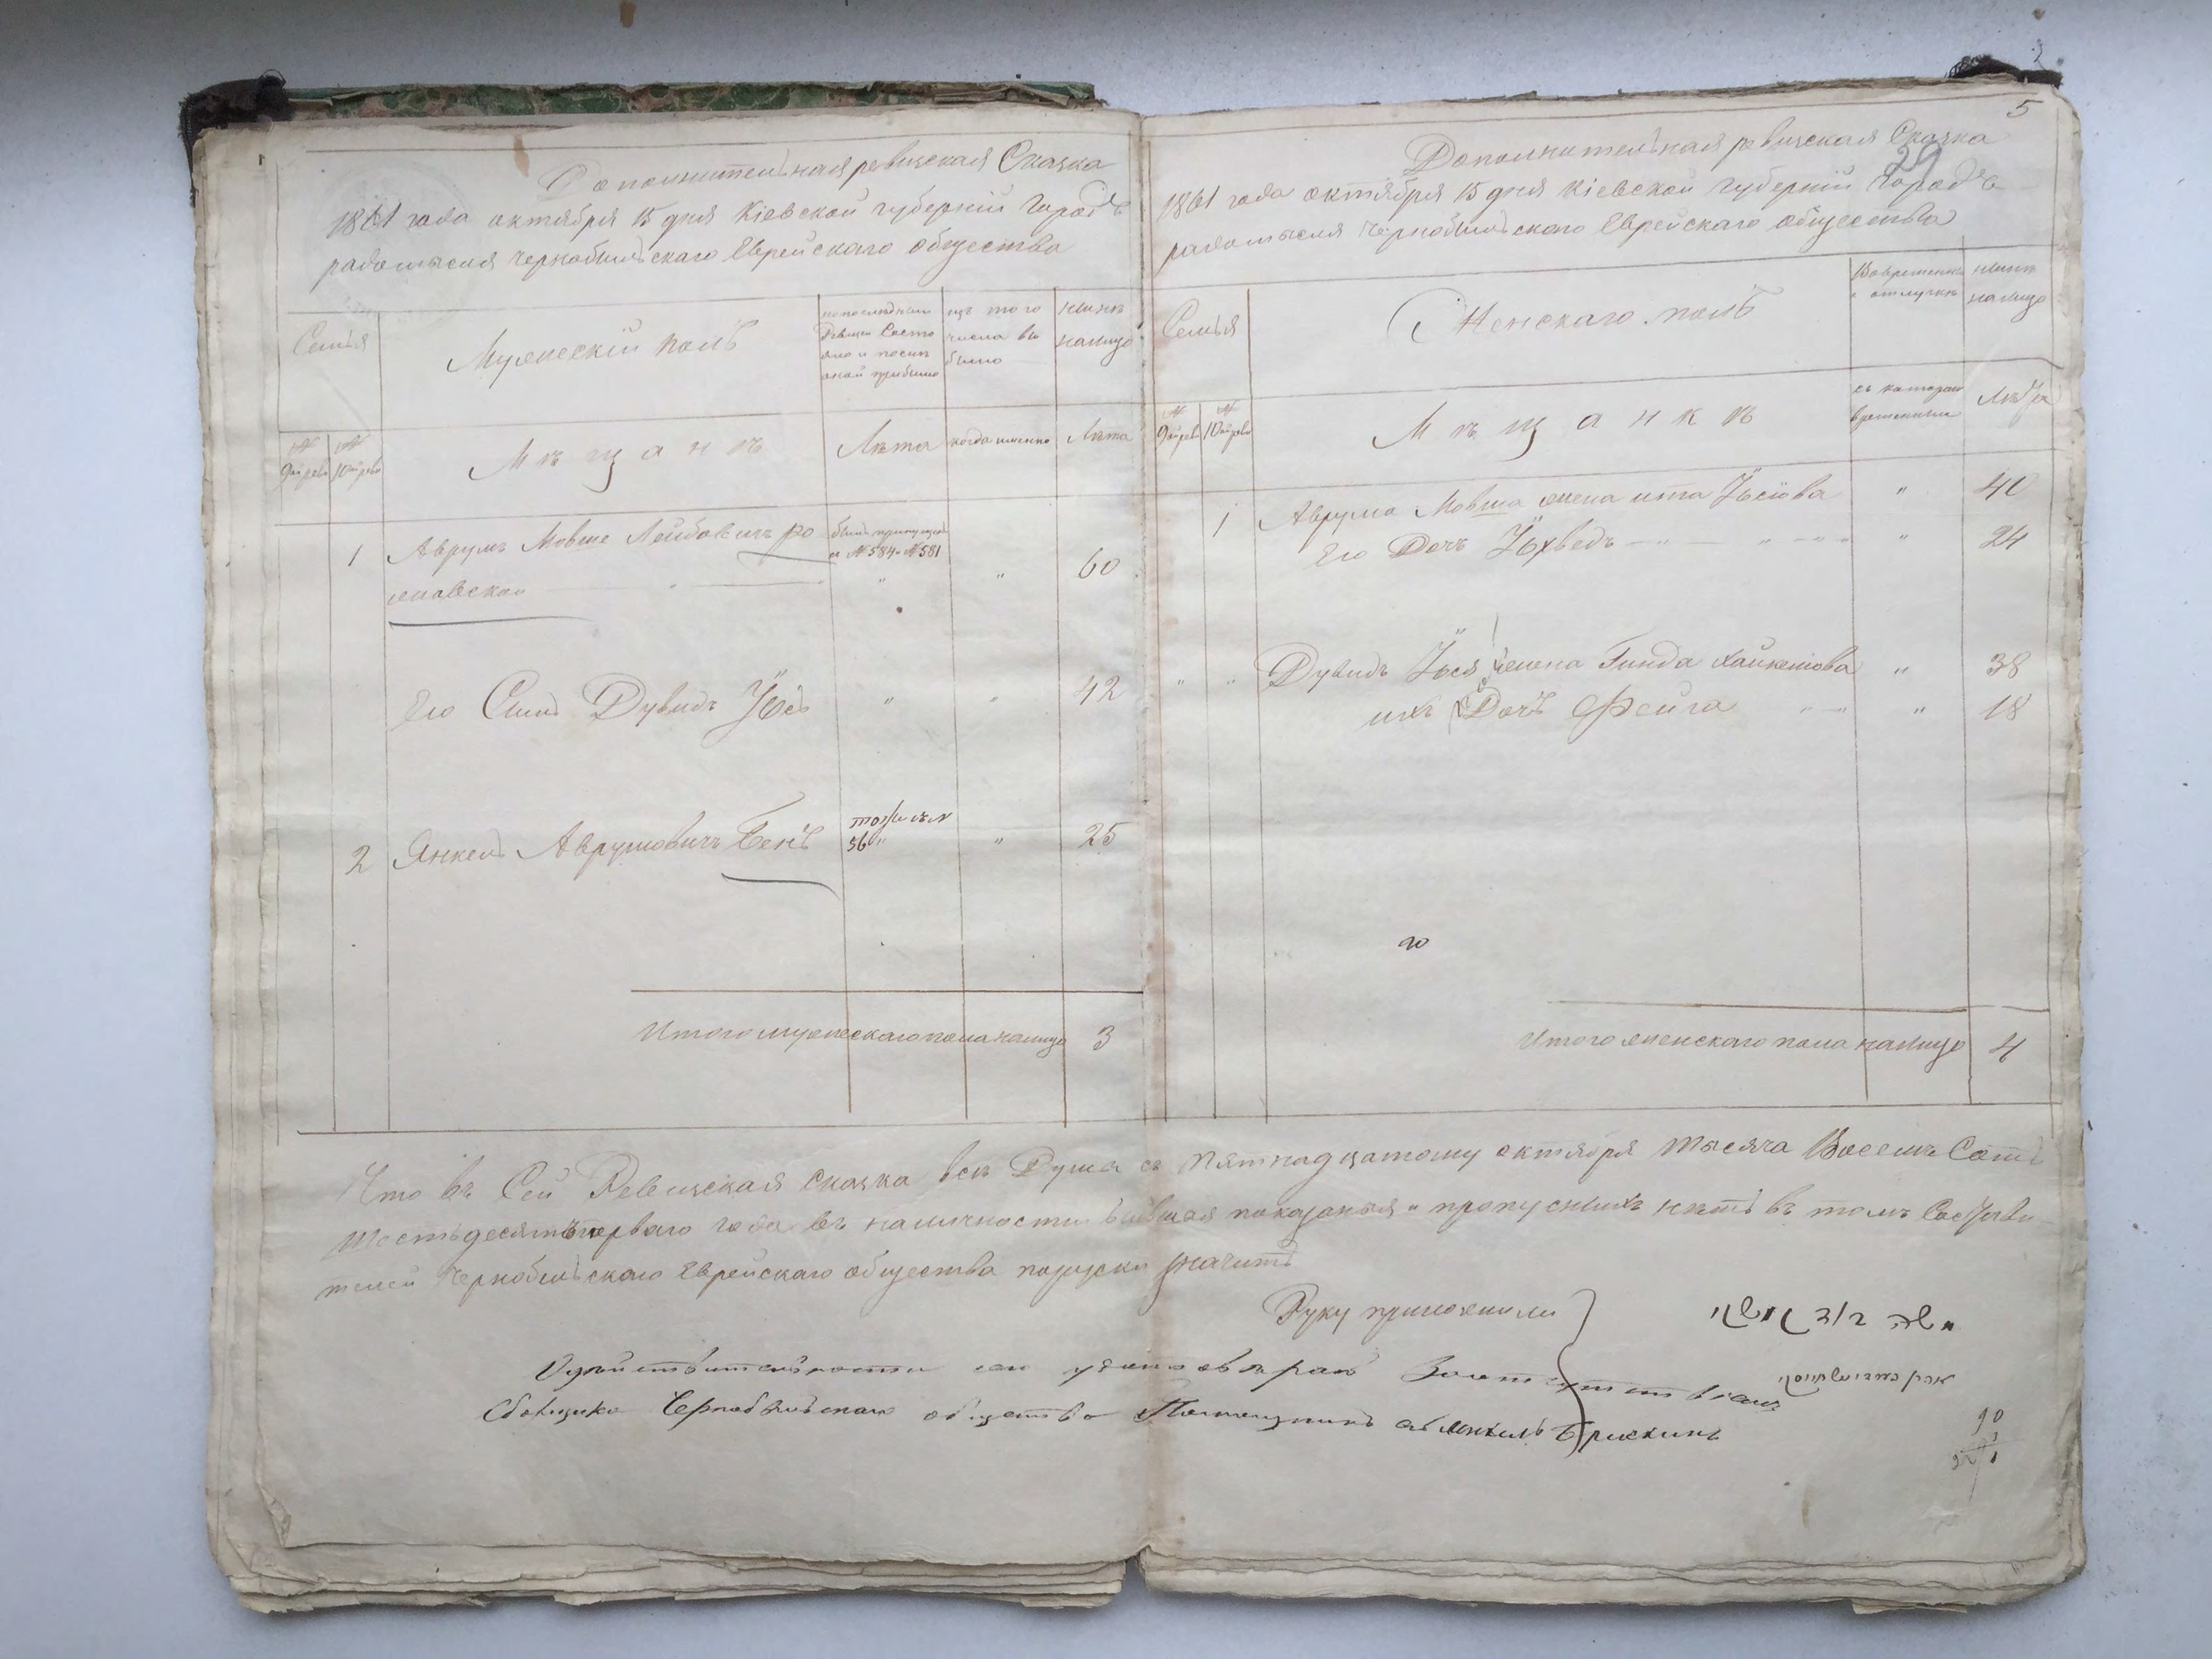 Дополнительная ревизская Сказка
1861 года октября 15 дня Кіевской губерніи Города
радомысля Чернобильскаго Еврейскаго общества
Семья
Мужескій полъ
изъ того числа выбыло
нынѣ налицо
№ 9й рев
№ 10й рев
Мѣщанѣ
Лѣта
когда именно
Лѣта
1 Аврумъ Мовше Лейбовичъ Ро
жнавской " " 60
№584 №581
Его Сынъ Дувидъ Йось " " 42
2 Янкель Аврумовичъ Бенъ " 25
Итого мужескаго пола налицо 3
5
Дополнительная ревизская Сказка
29
1861 года октября 15 дня Кіевской губерніи Города
радомысля Чернобильскаго Еврейскаго общества
Семья
Женскаго полъ
Во временной отлучкѣ
нынѣ налицо
№ 9й рев
№ 10й рев
Мѣщанкѣ
съ котораго времени
Лѣта
1 Аврума Мовша жена ита Йосіова " 40
Его Дочь Йохведь " " 24
" " Дувидъ Йося жена Гинда Хаикелова " 38
ихъ Дочь Фейга " " 18
Итого женскаго пола налицо 4
Что въ Сей Ревизская сказка всѣ Душа съ Пятнадцатому октября тысяча Восемъ Сотъ
Шестьдесятъ перваго года въ наличности бывшая показанья и пропусныхъ нѣтъ въ томъ Состави
телей Чернобильскаго Еврейскаго общества подписки значитъ
Руку приложили
Сборщика Чернобыльскаго общества
90